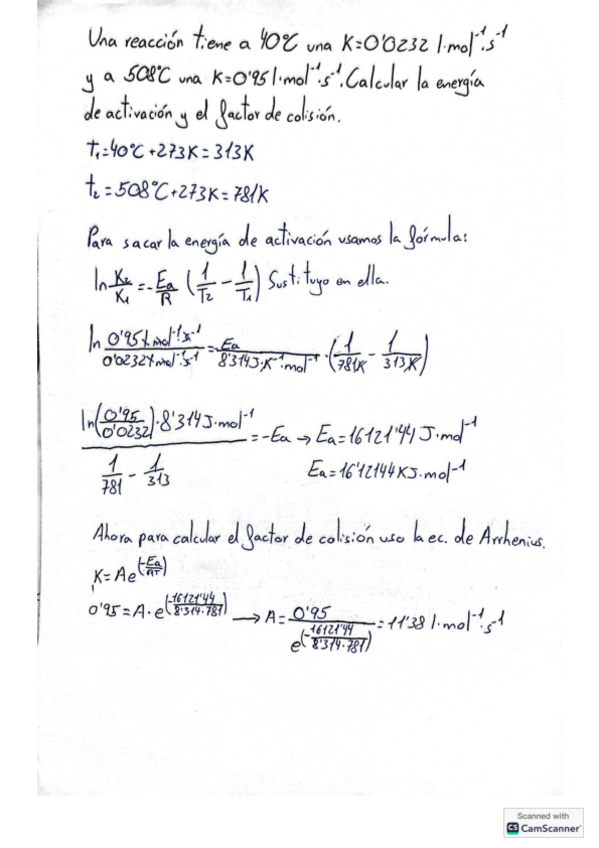 Una reacción tiene a 40°C una K=0'0232 l·mol⁻¹·s⁻¹
y a 508°C una K=0'95 l·mol⁻¹·s⁻¹. Calcular la energía
de activación y el factor de colisión.
t₁=40°C+273K=313K
t₂=508°C+273K=781K
Para sacar la energía de activación usamos la fórmula:
ln K₂/K₁ = -Ea/R (1/T₂ - 1/T₁) Sustituyo en ella.
ln 0'95 l·mol⁻¹·s⁻¹/0'0232 l·mol⁻¹·s⁻¹ = Ea/8'314J·K⁻¹·mol⁻¹ · (1/781K - 1/313K)
ln(0'95/0'0232)·8'314J·mol⁻¹/(1/781 - 1/313) = -Ea → Ea=16121'44 J·mol⁻¹
Ea=16'12144KJ·mol⁻¹
Ahora para calcular el factor de colisión uso la ec. de Arrhenius.
K=Ae^(-Ea/RT)
0'95=A·e^(-16121'44/8'314·781) → A=0'95/e^(-16121'44/8'314·781)=11'38 l·mol⁻¹·s⁻¹
Scanned with
CS CamScanner